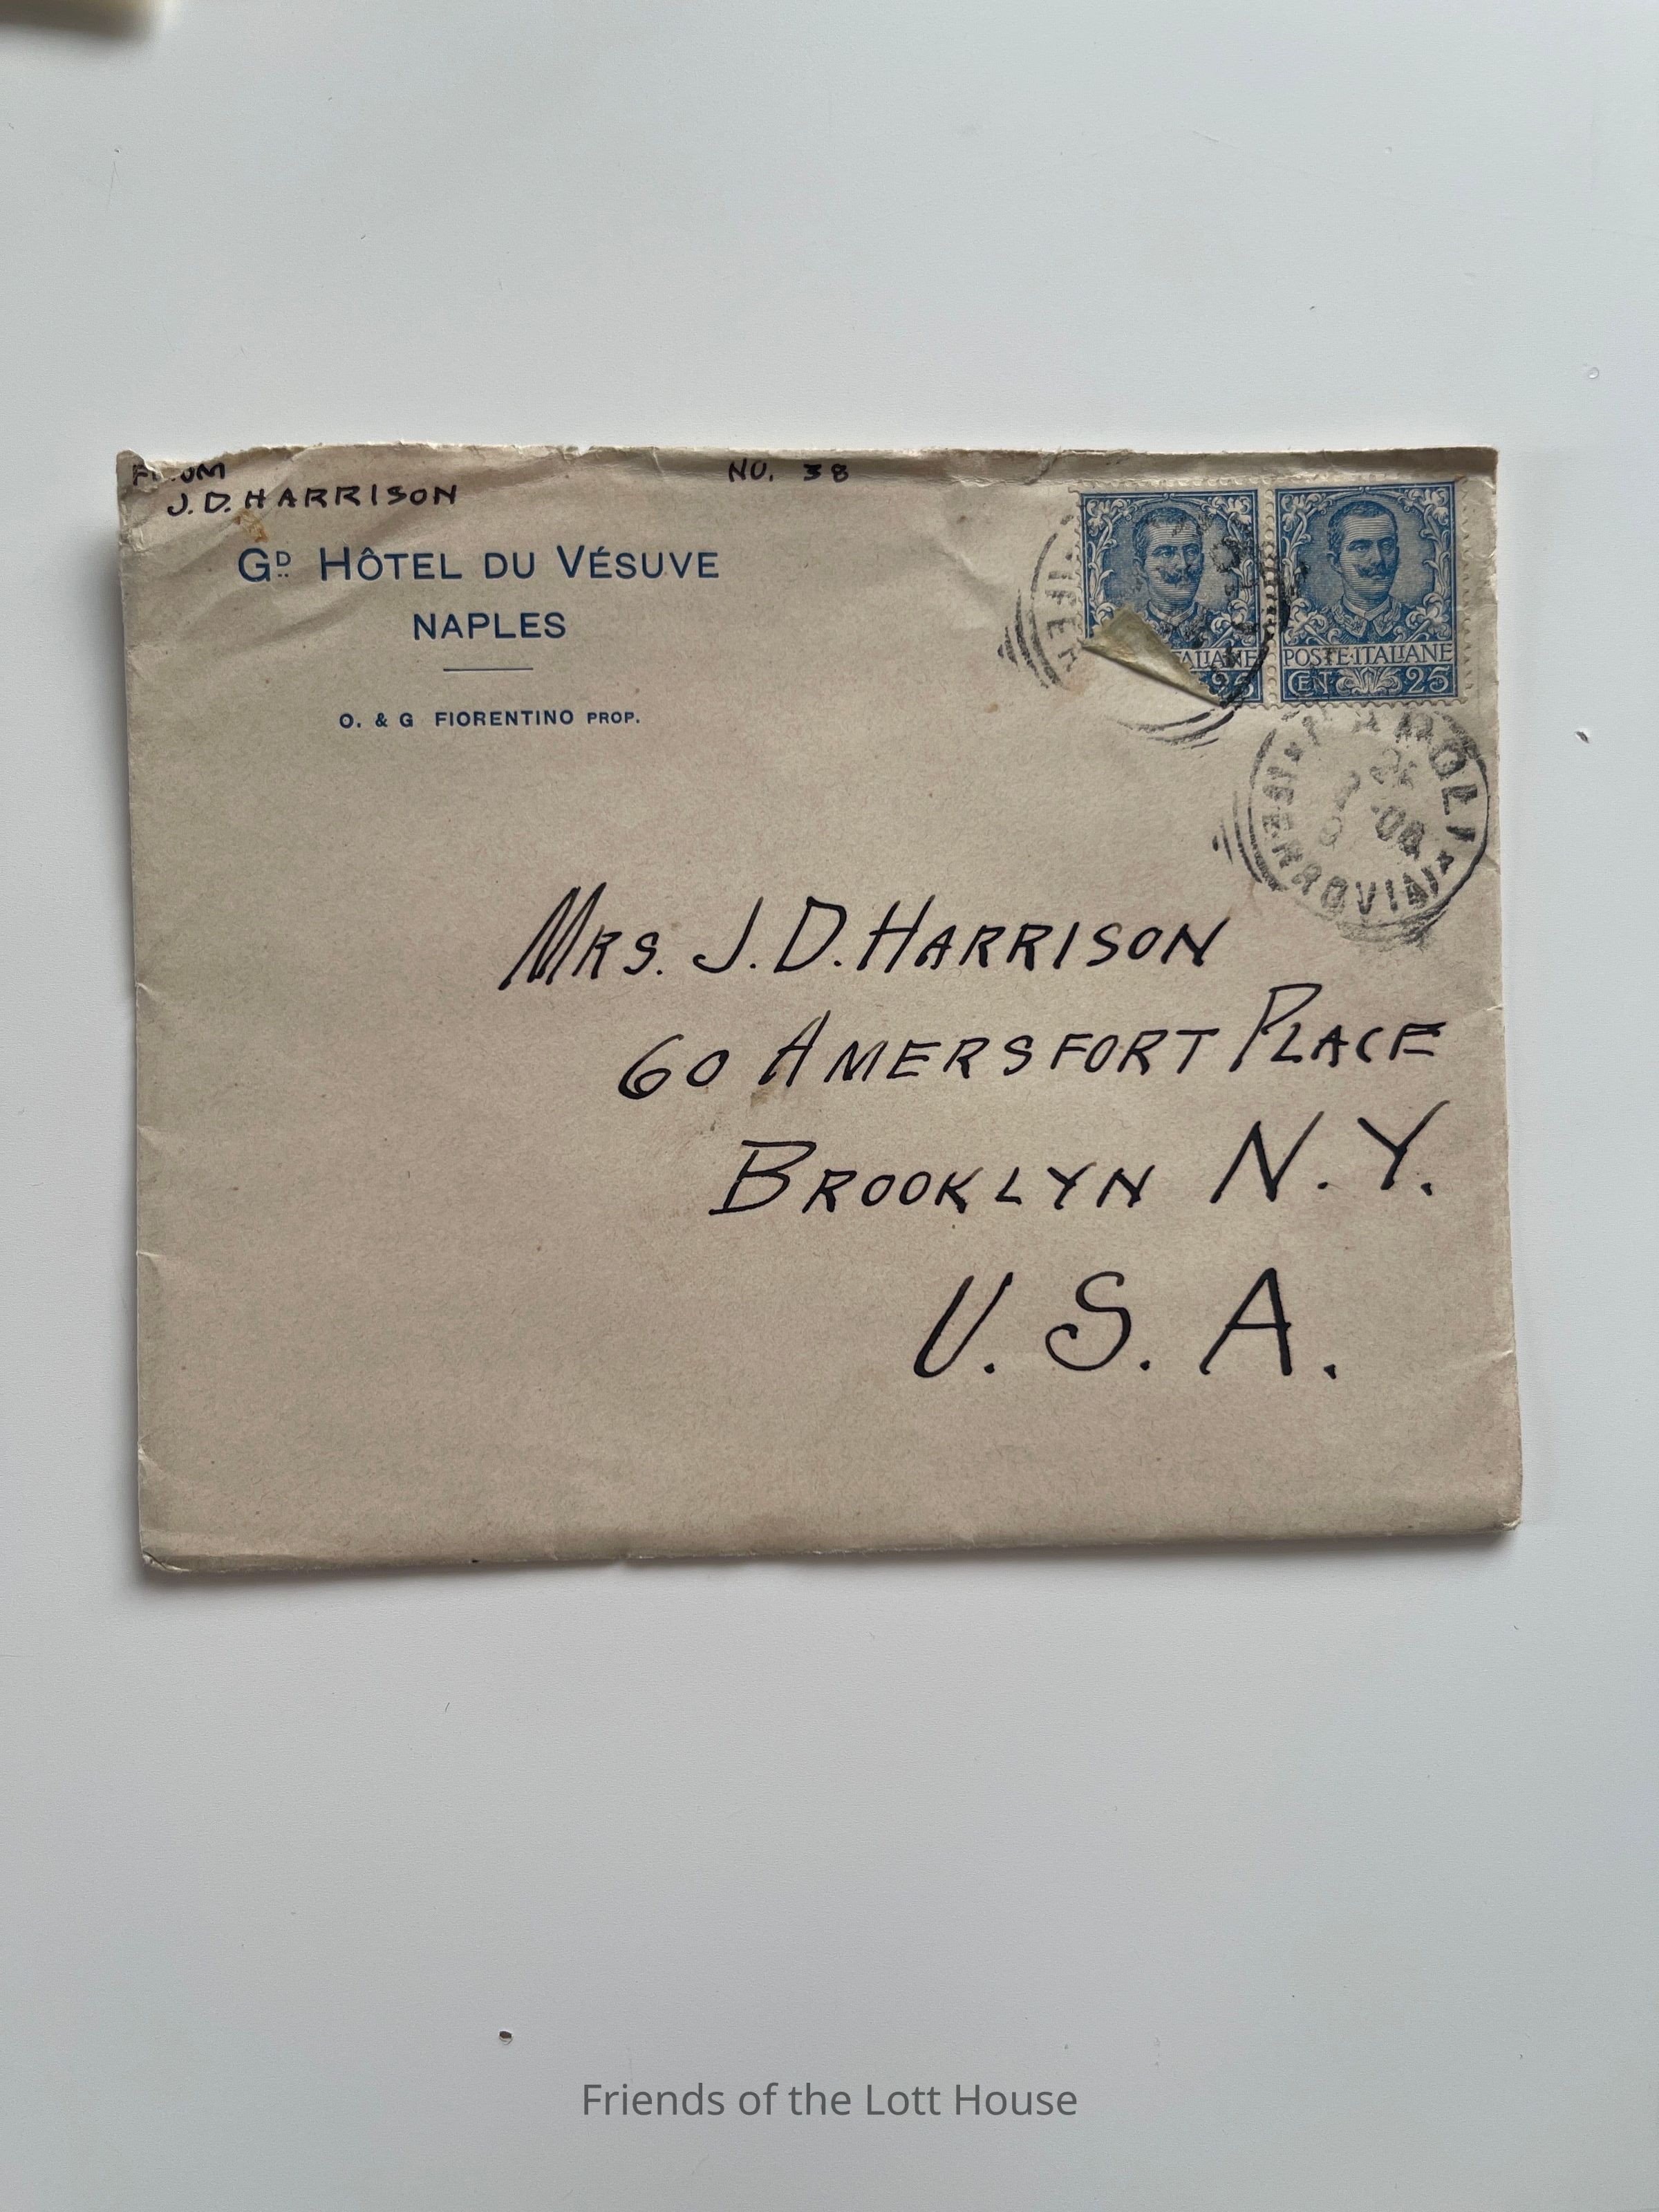 FROM
J.D. HARRISON
NO. 38
GD HÔTEL DU VÉSUVE
NAPLES
O. & G FIORENTINO PROP.
ALIANE
25
POSTE·ITALIANE
CEN. 25
NAPOLI
FERROVIA
MRS. J.D. HARRISON
60 AMERSFORT PLACE
BROOKLYN N.Y.
U.S.A.
Friends of the Lott House